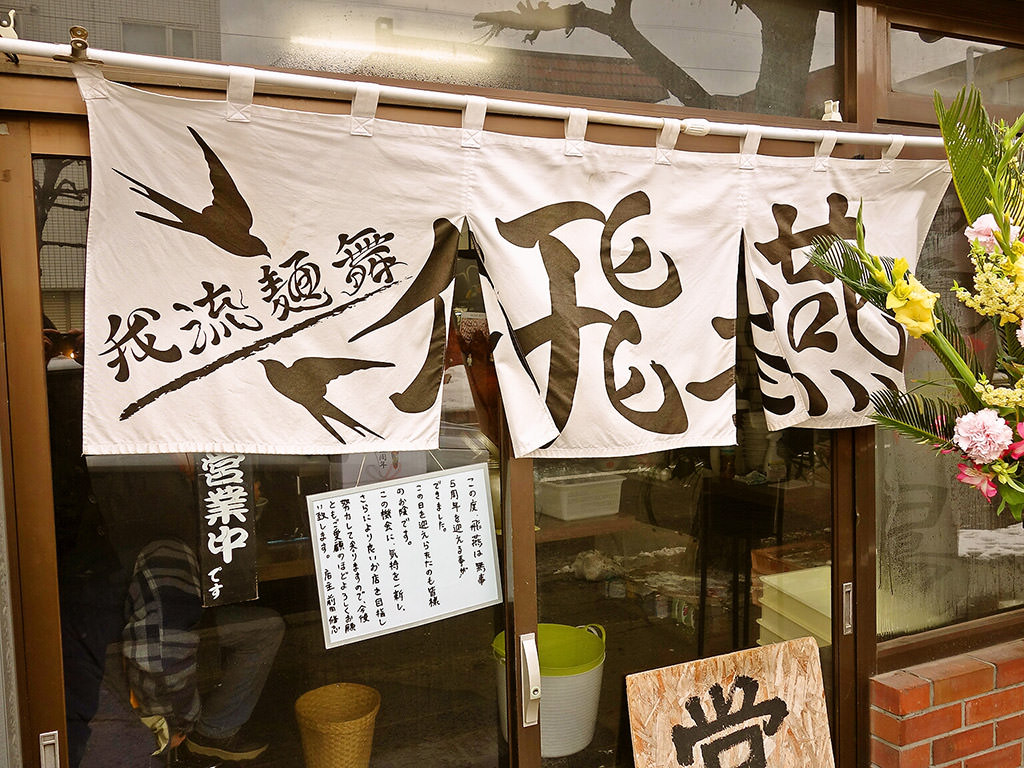 我流麺舞
飛燕
営業中です
周年
この度 飛燕は無事
5周年を迎える事が
できました。
この日を迎えられたのも皆様
のお陰です。
この機会に、気持を一新し、
さらにより良いお店を目指し
努力して参りますので、今後
ともご愛顧のほどよろしくお願
い致します。 店主 前田修志
営